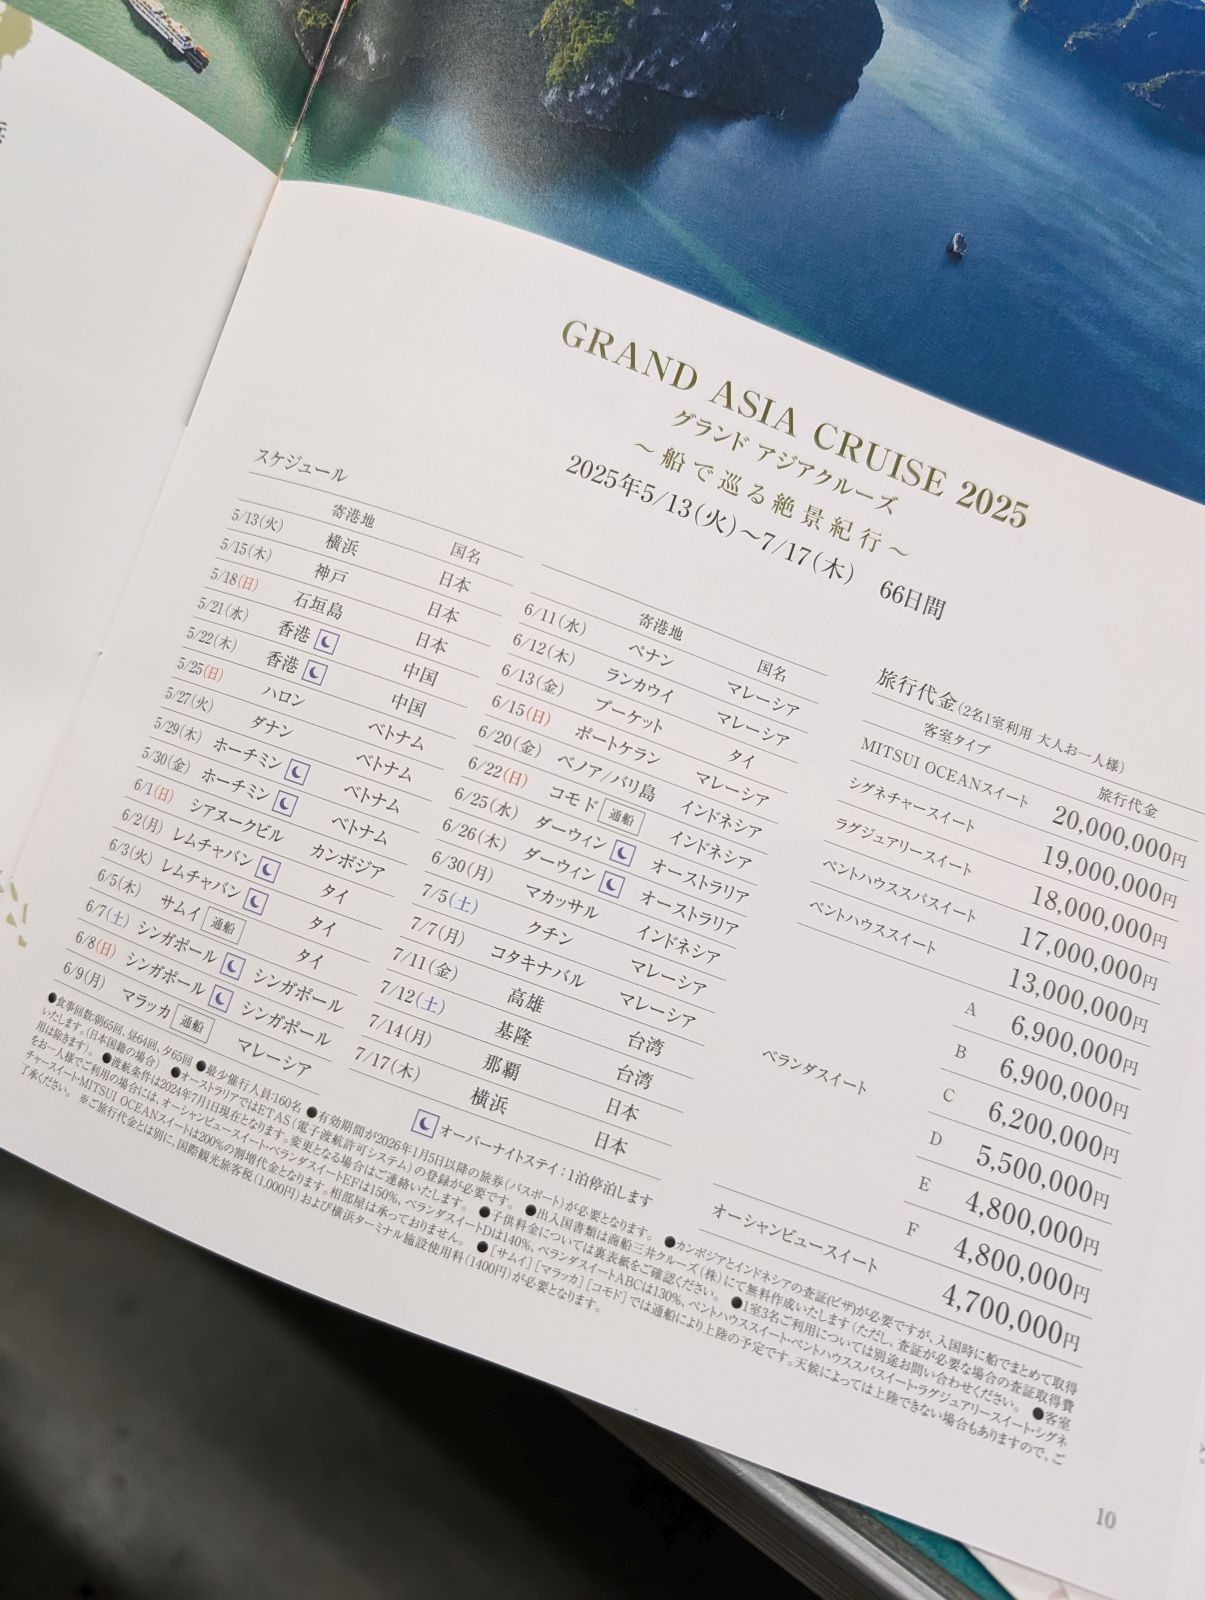 GRAND ASIA CRUISE 2025
グランド アジアクルーズ
～船で巡る絶景紀行～
2025年5/13(火)～7/17(木) 66日間
スケジュール
寄港地 国名
5/13(火) 横浜 日本
5/15(木) 神戸 日本
5/18(日) 石垣島 日本
5/21(水) 香港 中国
5/22(木) 香港 中国
5/25(日) ハロン ベトナム
5/27(火) ダナン ベトナム
5/29(木) ホーチミン ベトナム
5/30(金) ホーチミン ベトナム
6/1(日) シアヌークビル カンボジア
6/2(月) レムチャバン タイ
6/3(火) レムチャバン タイ
6/5(木) サムイ 通船 タイ
6/7(土) シンガポール シンガポール
6/8(日) シンガポール シンガポール
6/9(月) マラッカ 通船 マレーシア
寄港地 国名
6/11(水) ペナン マレーシア
6/12(木) ランカウイ マレーシア
6/13(金) プーケット タイ
6/15(日) ポートケラン マレーシア
6/20(金) ベノア/バリ島 インドネシア
6/22(日) コモド 通船 インドネシア
6/25(水) ダーウィン オーストラリア
6/26(木) ダーウィン オーストラリア
6/30(月) マカッサル インドネシア
7/5(土) クチン マレーシア
7/7(月) コタキナバル マレーシア
7/11(金) 高雄 台湾
7/12(土) 基隆 台湾
7/14(月) 那覇 日本
7/17(木) 横浜 日本
オーバーナイトステイ：1泊停泊します
旅行代金(2名1室利用 大人お一人様)
客室タイプ 旅行代金
MITSUI OCEANスイート 20,000,000円
シグネチャースイート 19,000,000円
ラグジュアリースイート 18,000,000円
ペントハウススパスイート 17,000,000円
ペントハウススイート 13,000,000円
ベランダスイート
A 6,900,000円
B 6,900,000円
C 6,200,000円
D 5,500,000円
E 4,800,000円
F 4,800,000円
オーシャンビュースイート 4,700,000円
●食事回数:朝65回、昼64回、夕65回 ●最少催行人員:160名 ●有効期間が2026年1月5日以降の旅券(パスポート)が必要となります。 ●カンボジアとインドネシアの査証(ビザ)が必要ですが、入国時に船でまとめて取得
いたします。(日本国籍の場合) ●オーストラリアではETAS(電子渡航許可システム)の登録が必要です。 ●出入国書類は商船三井クルーズ(株)にて無料作成いたします(ただし、査証が必要な場合の査証取得費
用は除きます)。 ●渡航条件は2024年7月1日現在となります。変更となる場合はご連絡いたします。 ●子供料金については裏表紙をご確認ください。 ●1室3名ご利用については別途お問い合わせください。 ●客室
をお一人様でご利用の場合には、オーシャンビュースイート・ベランダスイートEFは150%、ベランダスイートDは140%、ベランダスイートABCは130%、ペントハウススイート・ペントハウススパスイート・ラグジュアリースイート・シグネ
チャースイート・MITSUI OCEANスイートは200%の割増代金となります。相部屋は承っておりません。 ●[サムイ][マラッカ][コモド]では通船により上陸の予定です。天候によっては上陸できない場合もありますので、ご
了承ください。 ※ご旅行代金とは別に、国際観光旅客税(1,000円)および横浜ターミナル施設使用料(1400円)が必要となります。
10